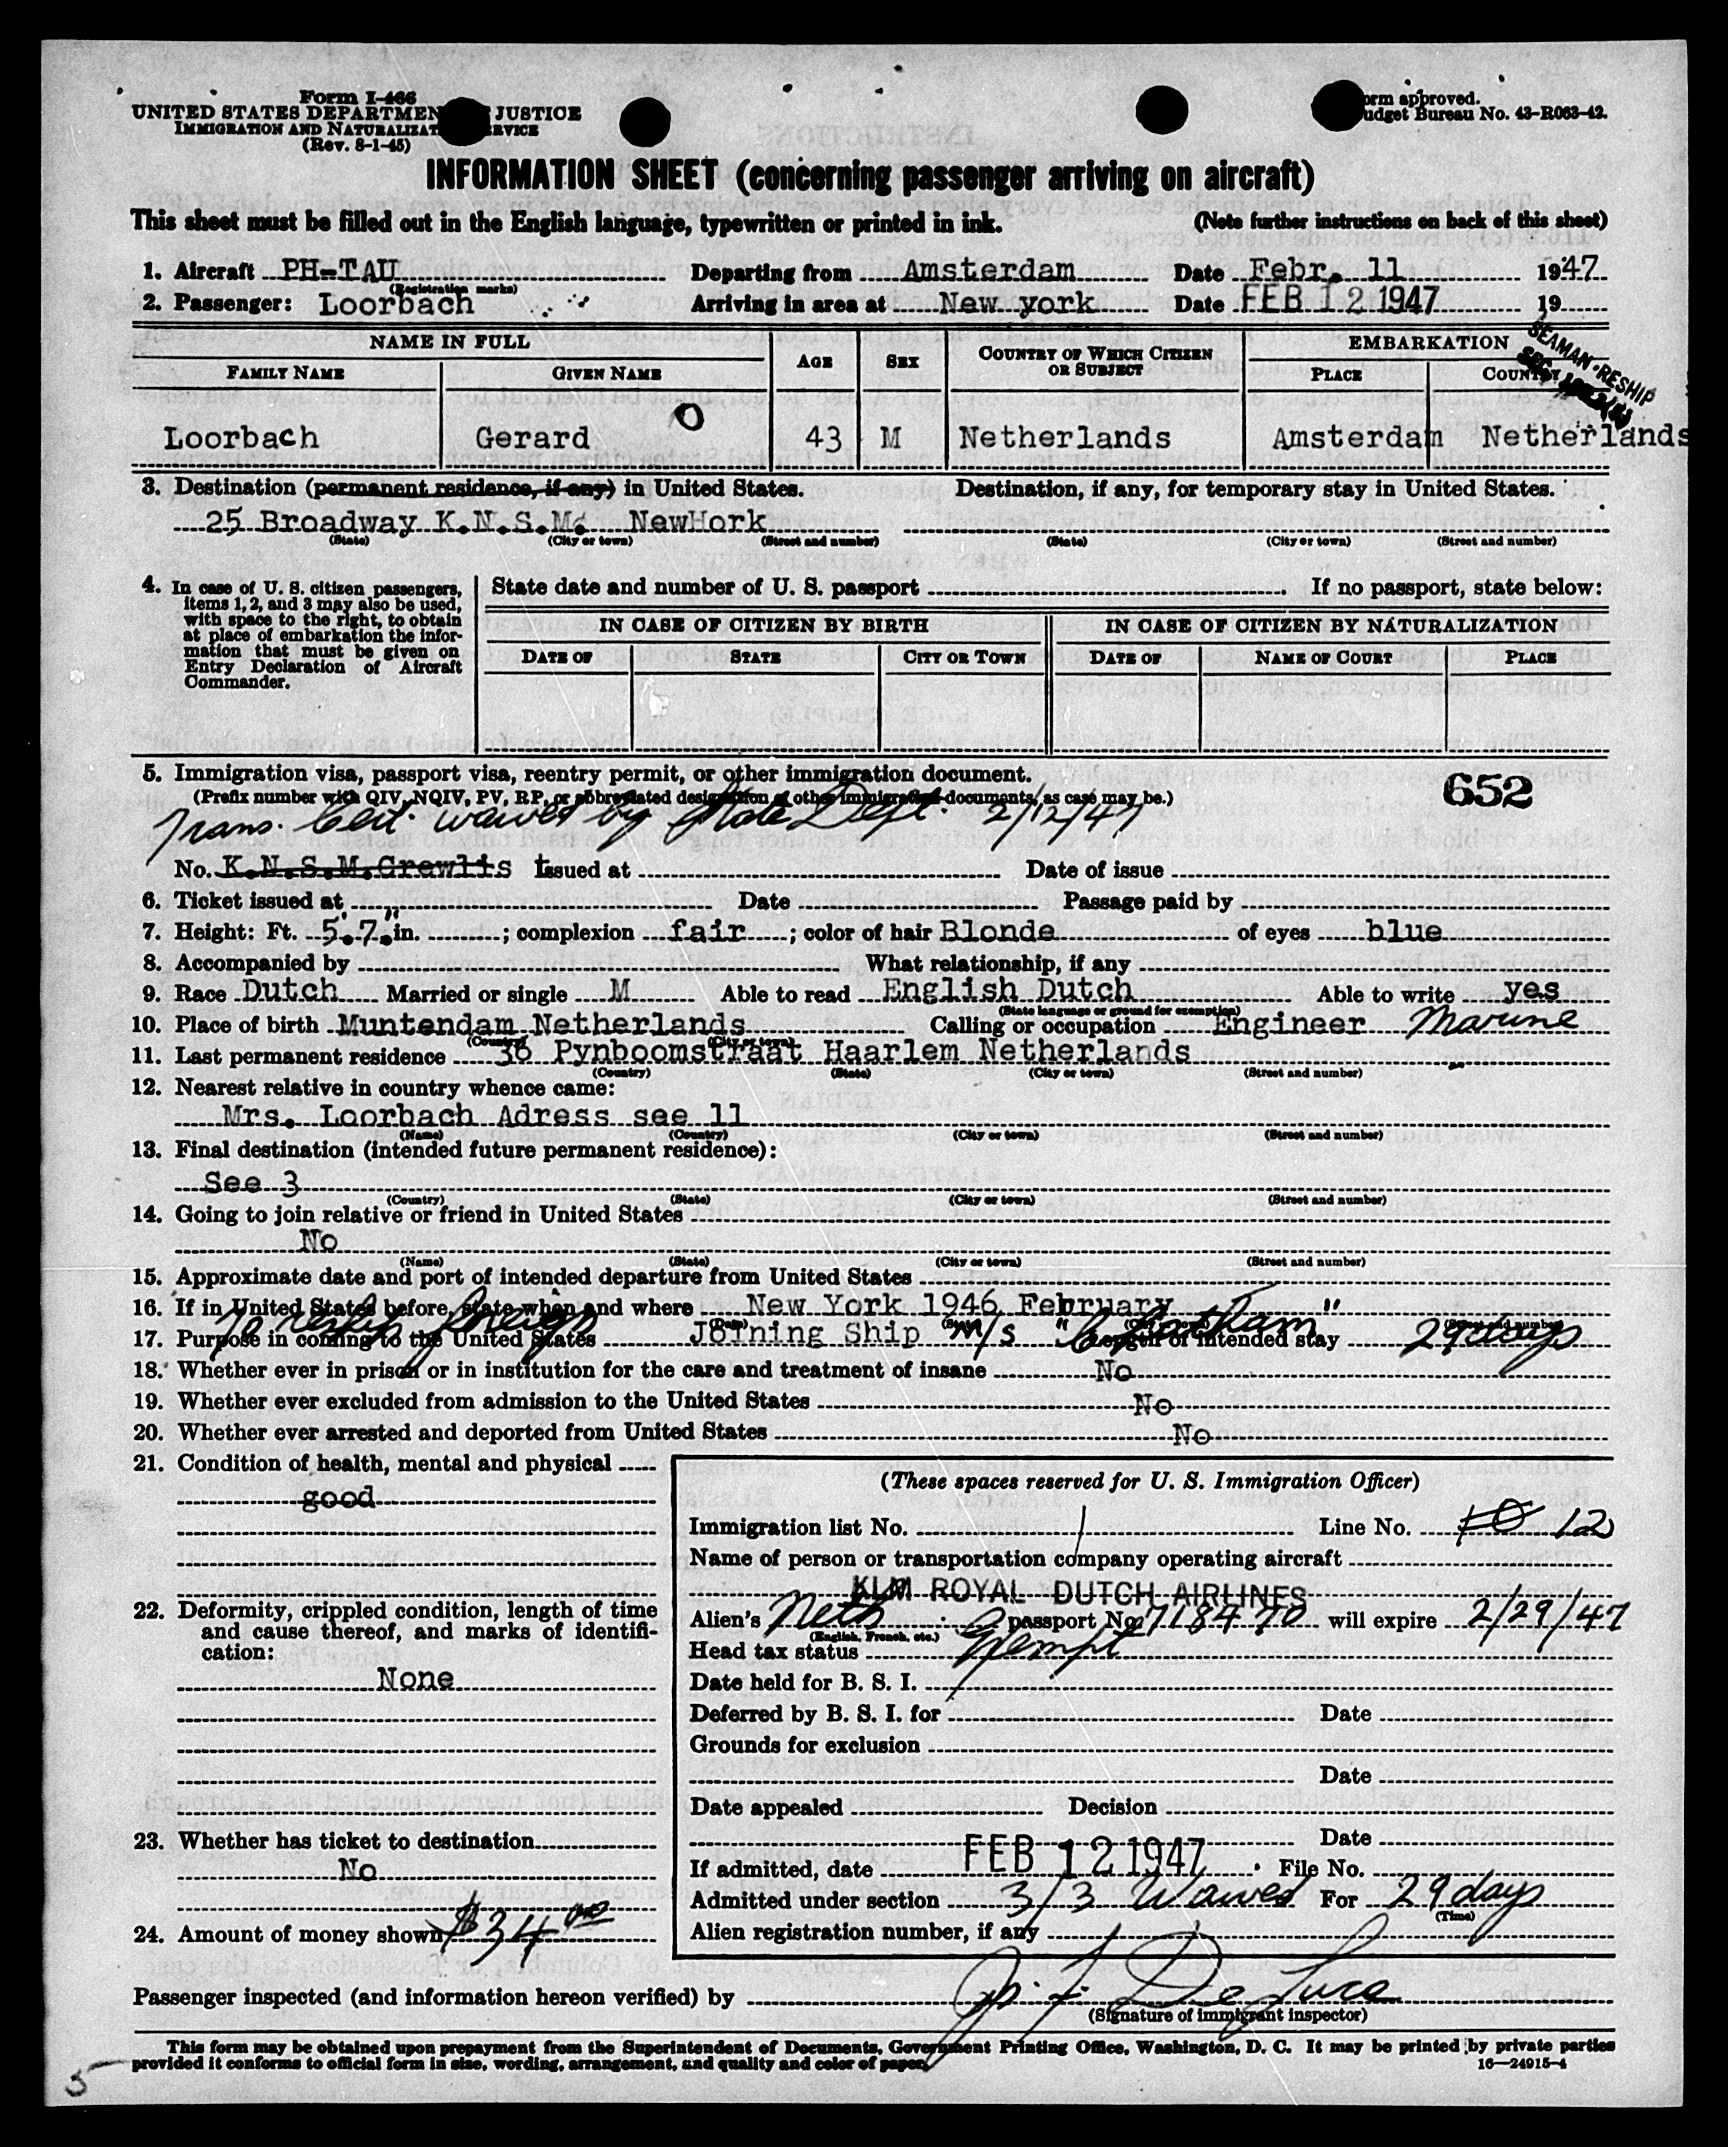 Form I-466
UNITED STATES DEPARTMEN JUSTICE
IMMIGRATION AND NATURALIZAT RVICE
(Rev. 8-1-45)
orm approved.
udget Bureau No. 43-R063-42.
INFORMATION SHEET (concerning passenger arriving on aircraft)
This sheet must be filled out in the English language, typewritten or printed in ink. (Note further instructions on back of this sheet)
1. Aircraft PH-TAU Departing from Amsterdam Date Febr. 11 1947
(Registration marks)
2. Passenger: Loorbach Arriving in area at New york Date FEB 12 1947 19
SEAMAN-RESHIP
NAME IN FULL AGE SEX COUNTRY OF WHICH CITIZEN OR SUBJECT EMBARKATION
FAMILY NAME GIVEN NAME PLACE COUNTRY
0
Loorbach Gerard 43 M Netherlands Amsterdam Netherlands
3. Destination (permanent residence, if any) in United States. Destination, if any, for temporary stay in United States.
25 Broadway K.N.S.M. NewHork
(State) (City or town) (Street and number) (State) (City or town) (Street and number)
4. In case of U. S. citizen passengers, items 1, 2, and 3 may also be used, with space to the right, to obtain at place of embarkation the information that must be given on Entry Declaration of Aircraft Commander.
State date and number of U. S. passport . If no passport, state below:
IN CASE OF CITIZEN BY BIRTH IN CASE OF CITIZEN BY NATURALIZATION
DATE OF STATE CITY OR TOWN DATE OF NAME OF COURT PLACE
5. Immigration visa, passport visa, reentry permit, or other immigration document.
652
(Prefix number with QIV, NQIV, PV, RP, or abbreviated designation of other immigration documents, as case may be.)
Trans. Cert. waived by State Dept. 2/12/47
No. K.N.S.M.Crewlis t Issued at Date of issue
6. Ticket issued at Date Passage paid by
7. Height: Ft. 5'.7." in. ; complexion fair ; color of hair Blonde of eyes blue
8. Accompanied by What relationship, if any
9. Race Dutch Married or single M Able to read English Dutch Able to write yes
(State language or ground for exemption)
10. Place of birth Muntendam Netherlands Calling or occupation Engineer Marine
(Country) (City or town)
11. Last permanent residence 36 Pynboomstraat Haarlem Netherlands
(Country) (State) (City or town) (Street and number)
12. Nearest relative in country whence came:
Mrs. Loorbach Adress see 11
(Name) (Country) (City or town) (Street and number)
13. Final destination (intended future permanent residence):
See 3
(Country) (State) (City or town) (Street and number)
14. Going to join relative or friend in United States
No
(Name) (State) (City or town) (Street and number)
15. Approximate date and port of intended departure from United States
16. If in United States before, state when and where New York 1946 February
(Date) (State) (City or town) (Street and number)
To reship foreign
17. Purpose in coming to the United States Joining Ship M/S Length of intended stay 29 days
18. Whether ever in prison or in institution for the care and treatment of insane No
19. Whether ever excluded from admission to the United States No
20. Whether ever arrested and deported from United States No
21. Condition of health, mental and physical
good
22. Deformity, crippled condition, length of time and cause thereof, and marks of identification:
None
23. Whether has ticket to destination
No
24. Amount of money shown $34 00
(These spaces reserved for U. S. Immigration Officer)
Immigration list No. 1 Line No. 10 12
Name of person or transportation company operating aircraft
KLM ROYAL DUTCH AIRLINES
Alien's Neth passport No. 718470 will expire 2/29/47
(English, French, etc.)
Head tax status Exempt
Date held for B. S. I.
Deferred by B. S. I. for Date
Grounds for exclusion
Date
Date appealed Decision
Date
If admitted, date FEB 12 1947 File No.
Admitted under section 3/3 Waived For 29 days
(Time)
Alien registration number, if any
Passenger inspected (and information hereon verified) by De Luca
(Signature of immigrant inspector)
This form may be obtained upon prepayment from the Superintendent of Documents, Government Printing Office, Washington, D. C. It may be printed by private parties
provided it conforms to official form in size, wording, arrangement, and quality and color of paper.
16—24915-4
5